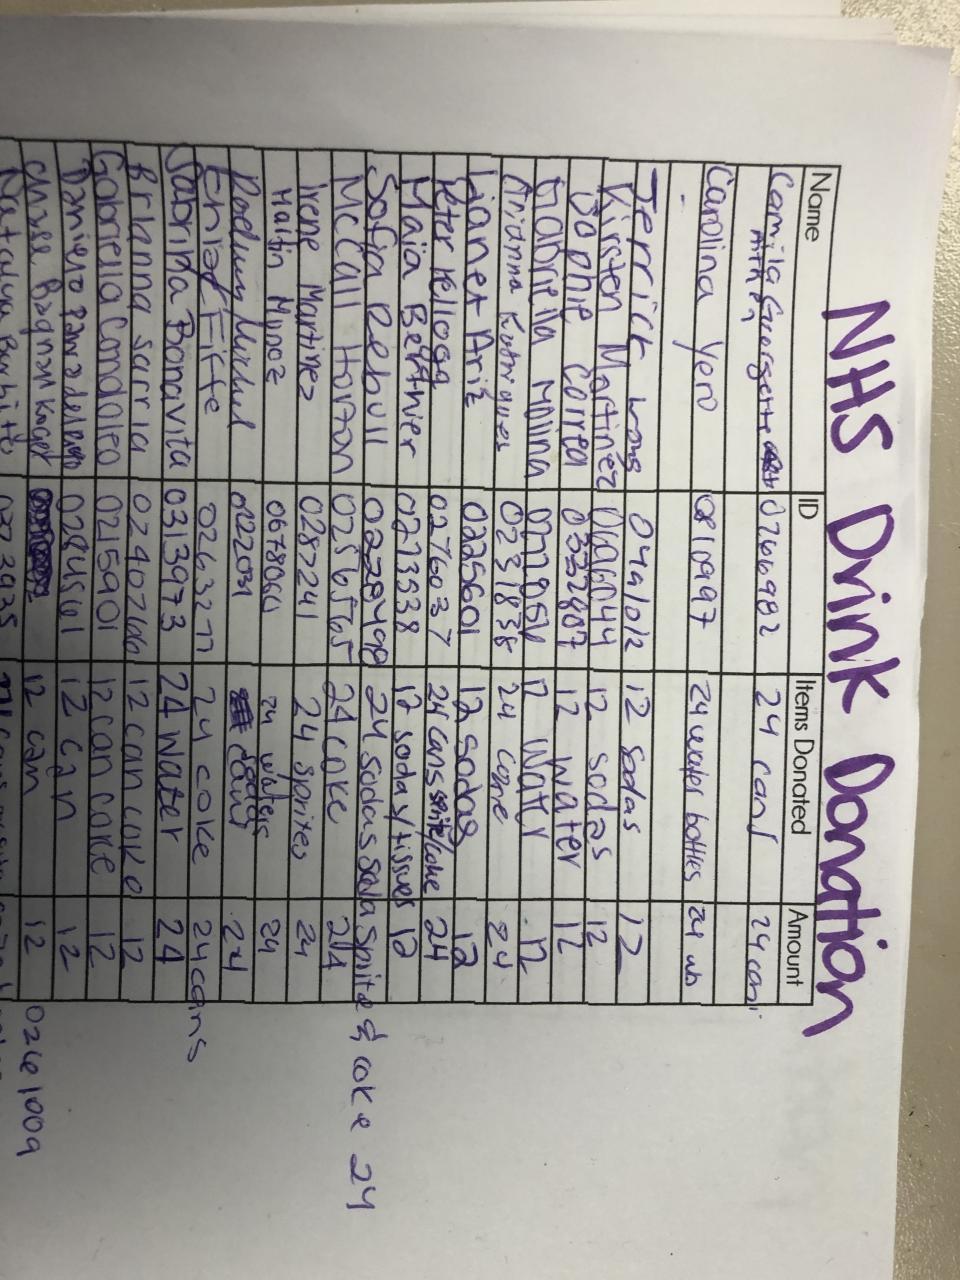 NHS Drink Donation
Name ID Items Donated Amount
Camila Georgette 0266982 24 cans 24 cans
Carolina Yero 0810997 24 water bottles 24 wb
-
Jerrick Wong 0491012 12 sodas 12
Kirsten Martinez 12 sodas 12
Sophie Correa 0332807 12 water 12
Gabriella Molina 12 Water 12
Arianna Rodriguez 0231838 24 24
Lianet Ariz 0225601 12 sodas 12
Peter Kellogg 0276037 24 cans sprite/coke 24
Maia Berthier 0273538 12 soda/tissues 12
Sofia Rebull 0228498 24 sodas Soda Sprite & coke 24
McCall Horton 0256565 24 coke 24
Irene Martinez 0287241 24 sprites 24
Martin Munoz 0678060 24 waters 24
24
Fitte 0263277 24 coke 24 cans
Sabrina Bonavita 0313973 24 Water 24
Brianna Sarria 0240766 12 can coke 12
Gabriella Condoleo 0215901 12 can coke 12
Daniero 0284561 12 can 12
Chase 12 can 12 0261009